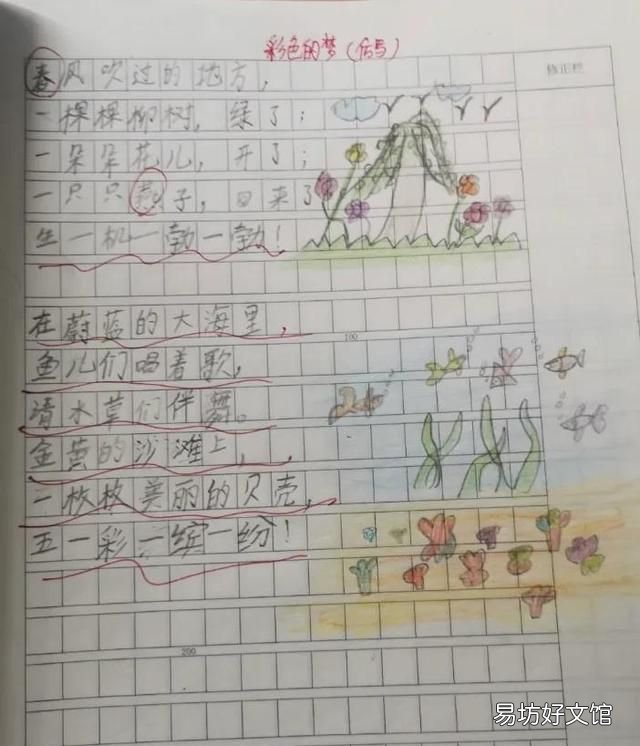 彩色的梦（仿写）
修正栏
春风吹过的地方，
一棵棵柳树，绿了；
一朵朵花儿，开了；
一只只燕子，回来了
生一机一勃一勃！
在蔚蓝的大海里，
鱼儿们唱着歌，
请水草们伴舞。
金黄的沙滩上，
一枚枚美丽的贝壳，
五一彩一缤一纷！
100
200
易坊好文馆